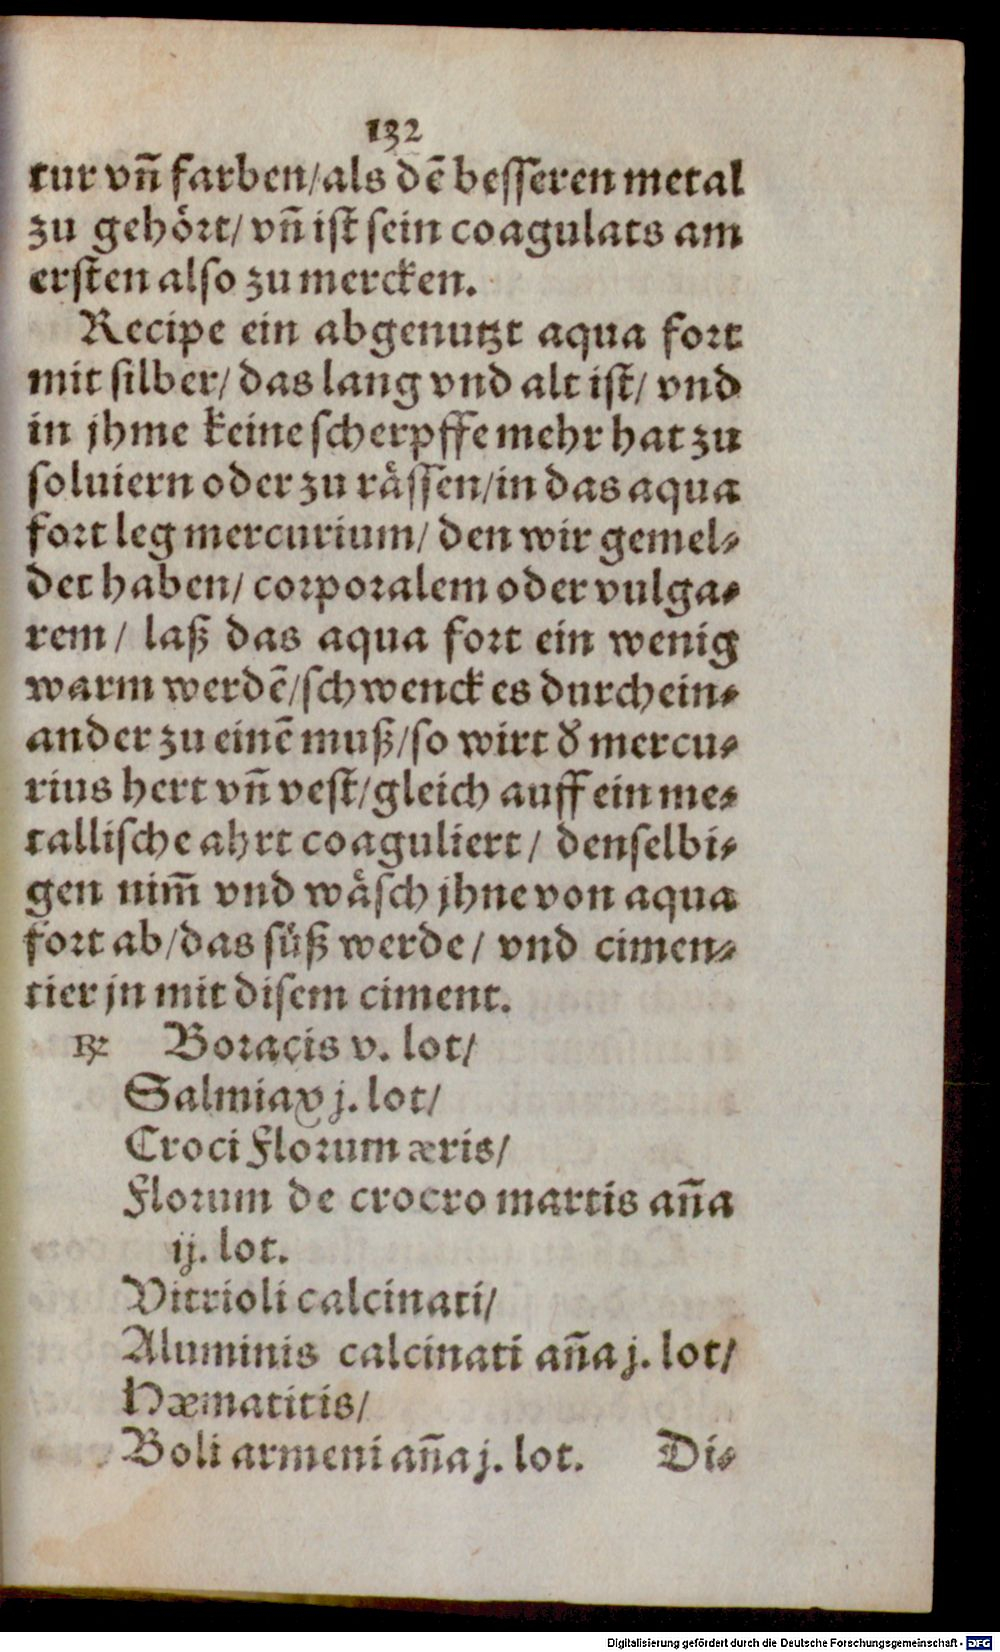 132
tur vñ farben/als dē besseren metal
zu gehört/ vñ ist sein coagulats am
ersten also zu mercken.
Recipe ein abgenutzt aqua fort
mit silber/ das lang vnd alt ist/ vnd
in jhme keine scherpffe mehr hat zu
soluiern oder zu rässen/in das aqua
fort leg mercurium/ den wir gemel⸗
det haben/ corporalem oder vulga⸗
rem/ laß das aqua fort ein wenig
warm werdē/schwenck es durchein⸗
ander zu einē muß/so wirt d' mercu⸗
rius hert vñ vest/gleich auff ein me⸗
tallische ahrt coaguliert/ denselbi⸗
gen nim̄ vnd wäsch jhne von aqua
fort ab/das süß werde/ vnd cimen⸗
tier jn mit disem ciment.
℞ Boracis v. lot/
Salmiax j. lot/
Croci Florum æris/
Florum de crocro martis aña
ij. lot.
Vitrioli calcinati/
Aluminis calcinati aña j. lot/
Hæmatitis/
Boli armeni aña j. lot. Di⸗
Digitalisierung gefördert durch die Deutsche Forschungsgemeinschaft - DFG